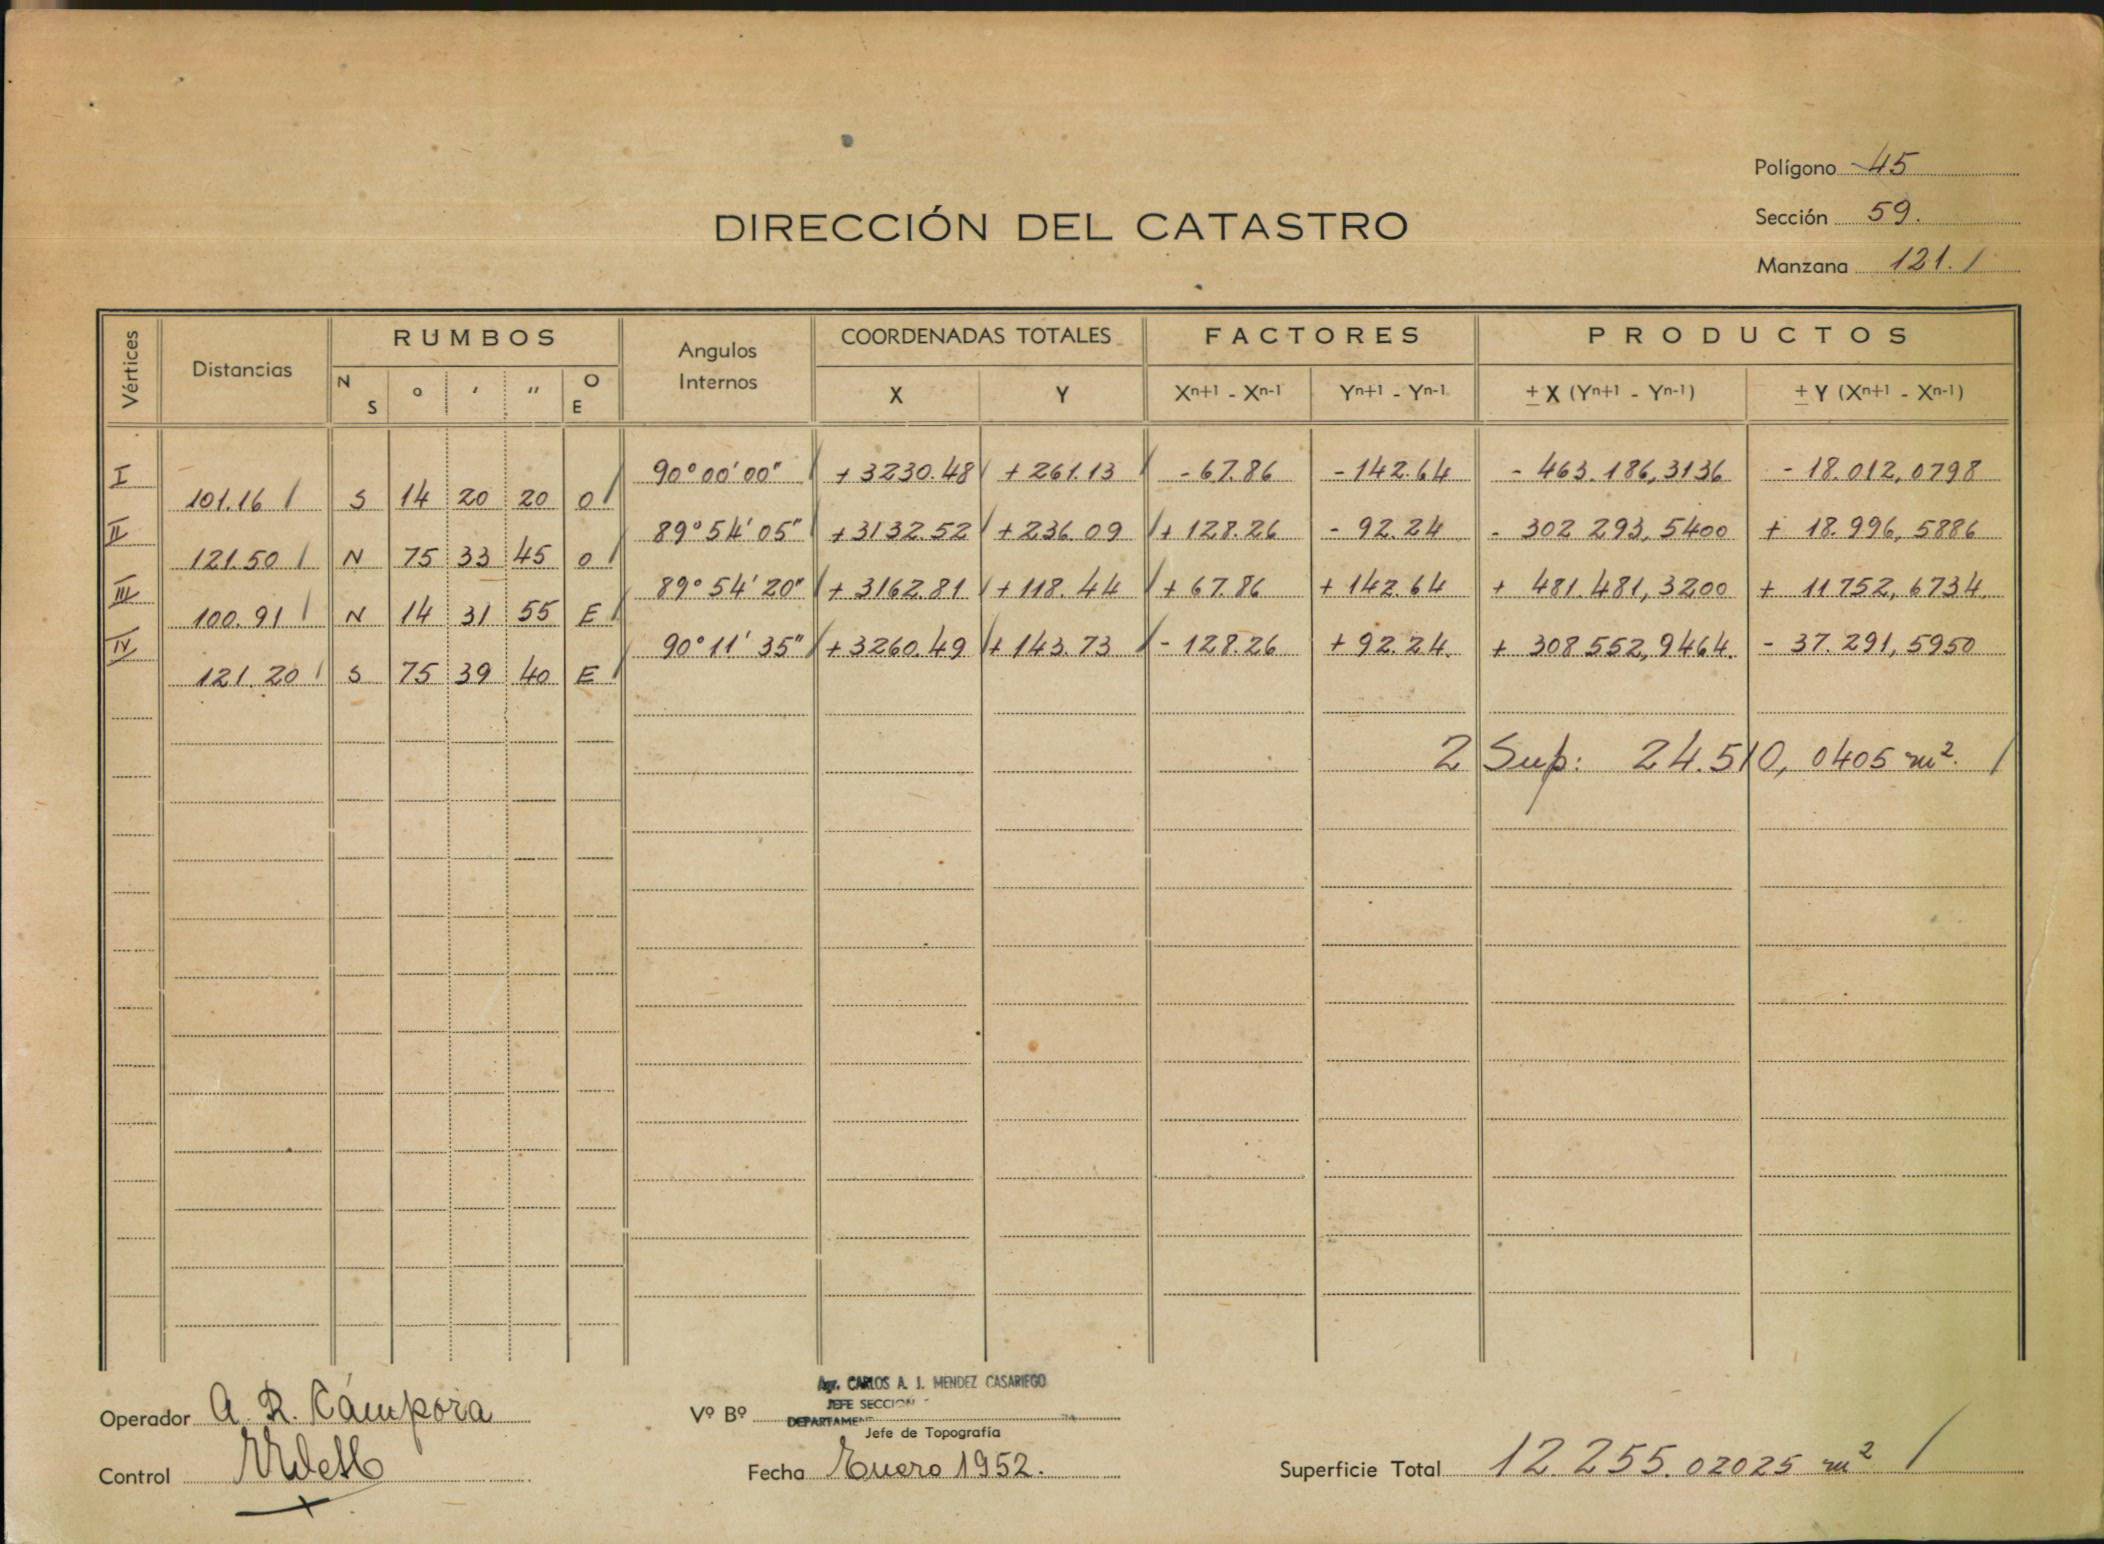 Polígono 45
Sección 59.
Manzana 121. /
DIRECCIÓN DEL CATASTRO
Vértices Distancias RUMBOS Angulos Internos COORDENADAS TOTALES FACTORES PRODUCTOS
N S ° ' " O E X Y Xn+1 - Xn-1 Yn+1 - Yn-1 ± X (Yn+1 - Yn-1) ± Y (Xn+1 - Xn-1)
I 90° 00' 00" / + 3230.48 / + 261.13 / - 67.86 - 142.64 - 463.186,3136 - 18.012,0798
101.16 / S 14 20 20 O /
II 89° 54' 05" / + 3132.52 / + 236.09 / + 128.26 - 92.24 - 302 293,5400 + 18.996,5886
121.50 / N 75 33 45 O /
III 89° 54' 20" / + 3162.81 / + 118.44 / + 67.86 + 142.64 + 481.481,3200 + 11 752,6734.
100.91 / N 14 31 55 E /
IV 90° 11' 35" / + 3260.49 / + 143.73 / - 128.26 + 92.24. + 308 552,9464. - 37.291,5950
121.20 / S 75 39 40 E /
2 Sup: 24.510,0405 m². /
Operador A. R. Cámpora
Control
Agr. CARLOS A. J. MENDEZ CASARIEGO
JEFE SECCION
Vº Bº DEPARTAMEN
Jefe de Topografía
Fecha Enero 1952.
Superficie Total 12.255.02025 m² /